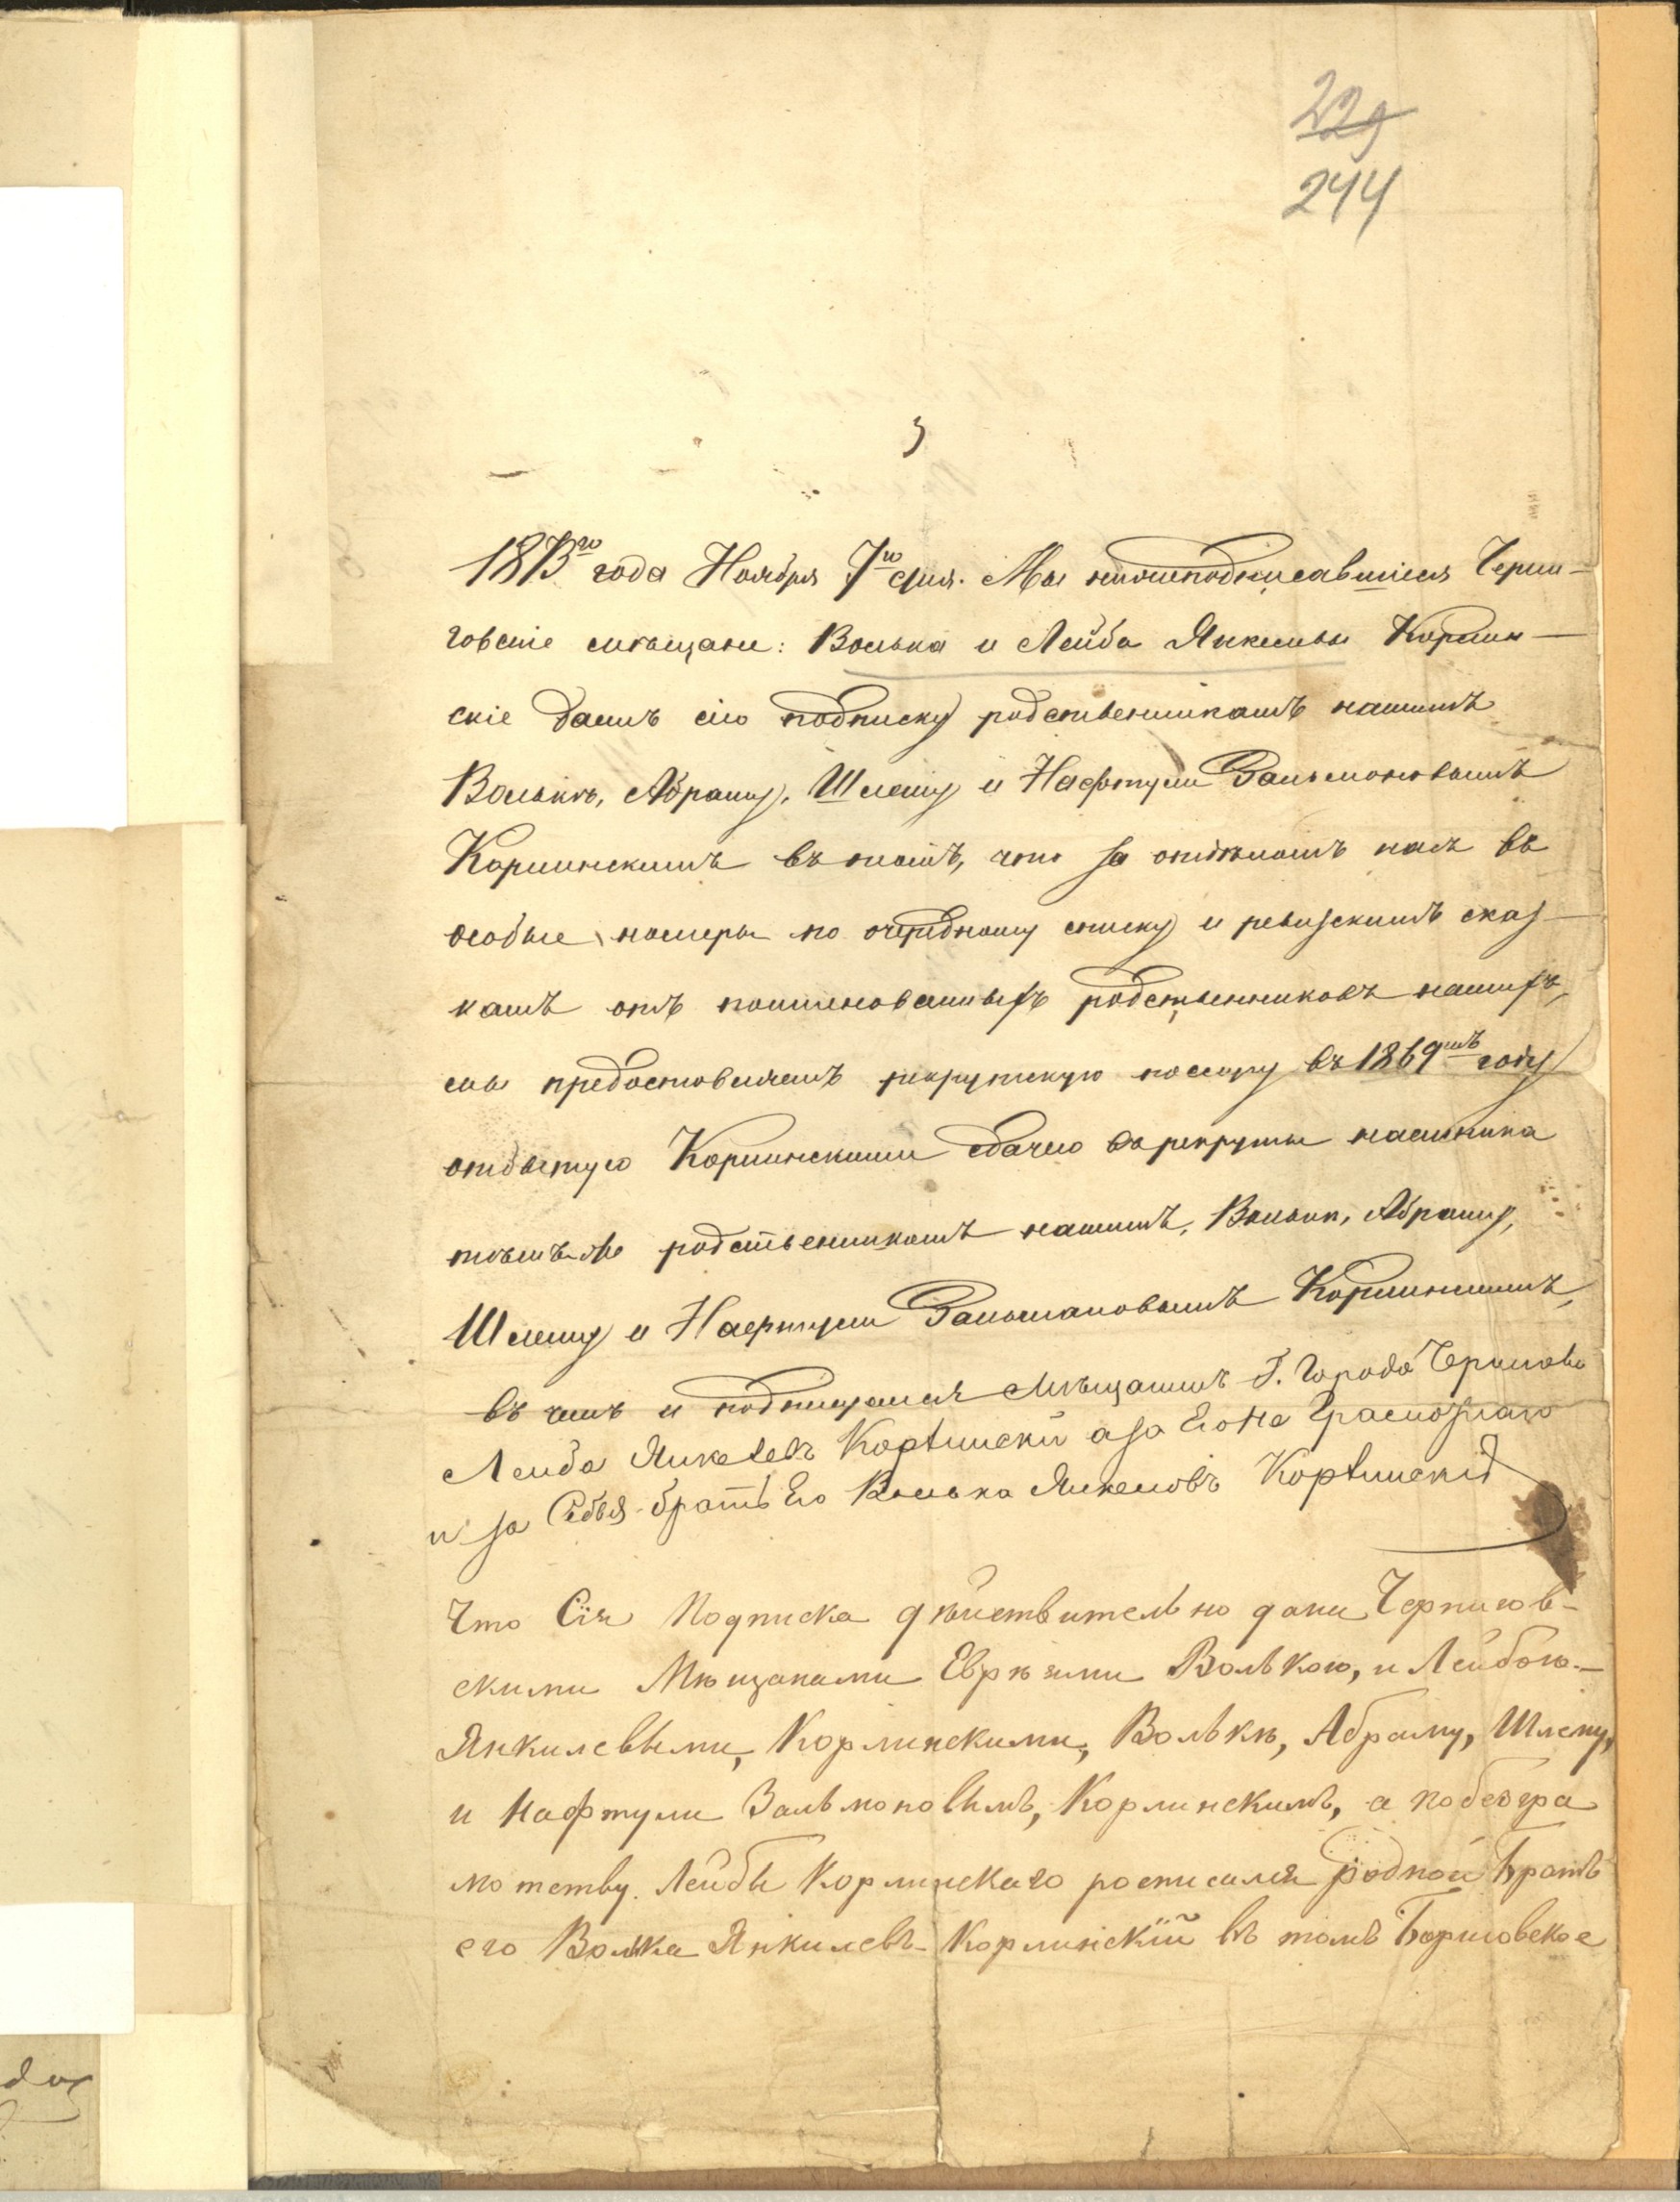 229
244
1873го года Ноября 7го дня. Мы нижеподписавшіеся Черни-
говскіе мѣщане: Волька и Лейба Янкелевы Корлин-
скіе даемъ сію подписку родственникамъ нашимъ
Волькѣ, Абраму, Шлему и Нафтули Зальмоновымъ
Карлинскимъ въ томъ, что за отдѣломъ насъ въ
особые номеры по очередному списку и ревизскимъ сказ-
камъ отъ поименованныхъ родственниковъ нашихъ,
мы предоставляемъ рекрутскую поставку въ 1869мъ году
отбытую Корлинскими сдачею въ рекруты наемника
тѣмъ-же родственникамъ нашимъ, Волькѣ, Абраму,
Шлему и Нафтули Зальмановымъ Корлинскимъ,
въ чемъ и подпишемся Мѣщанинъ Г. Города Чернигова
Лейба Янкелевъ Корлински а за Его не Грамотнаго
и за Себья братъ Его Волька Янкелевъ Корлинскій
Что Сія Подписка дѣйствительно дана Чернигов-
скими Мѣщанами Евреями Волькою, и Лейбою
Янкилевыми, Корлинскими, Волькѣ, Абраму, Шлему,
и Нафтули Зальмоновымъ, Корлинскимъ, а по безгра
мотству Лейбы Корлинскаго росписался родной Братъ
его Волка Янкилевъ Корлинскій въ томъ